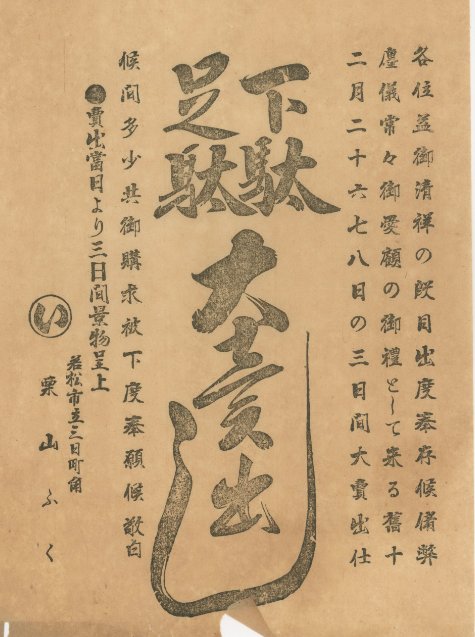 各位益御清祥の段目出度奉存候偖弊
塵儀常々御愛顧の御禮として来る舊十
二月二十六七八日の三日間大賣出仕
下駄
足駄
大賣出し
候間多少共御購求被下度奉願候敬白
●賣出當日より三日間景物呈上
若松市立三日町角
い
栗山ふく